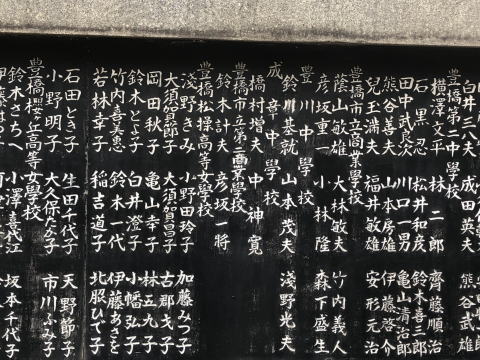 白井三八夫 成田英夫
豊橋第二中學校
横澤文平 林二郎 齊藤順治
石黒忍 松井和彦 鈴木喜三郎
田中武良次 川口一男 亀山清治郎
熊谷善夫 山本房雄 伊藤啓介
兒玉満夫 福井敏雄 安形元治
豊橋市立商業學校
蔭山敏雄 大林敏夫 竹内義人
彦坂重一 小林隆 森下盛生
豊川中學校
鈴川基就 山本茂夫 淺野光夫
成章中學校
橋村増夫 中神寛
豊橋市立第二商業學校
鈴木計夫 彦坂一将
豊橋松操高等女學校
淺野きみ 小野田玲子
大須賀郎子 大須賀昌子 加藤みつ子
岡田秋子 亀山幸子 古郡戈子
鈴木とよ子 白井澄子 林五九子
竹内喜美恵 鈴木一代 小幡弘子
若林幸子 稲吉道子 伊藤あさを
北服ひで子
豊橋櫻ヶ丘高等女學校
石田とき子 生田千代子 天野節子
小野明子 大久保久子 市川ふみ子
鈴木さちへ 小澤喜枝江 坂本千代子